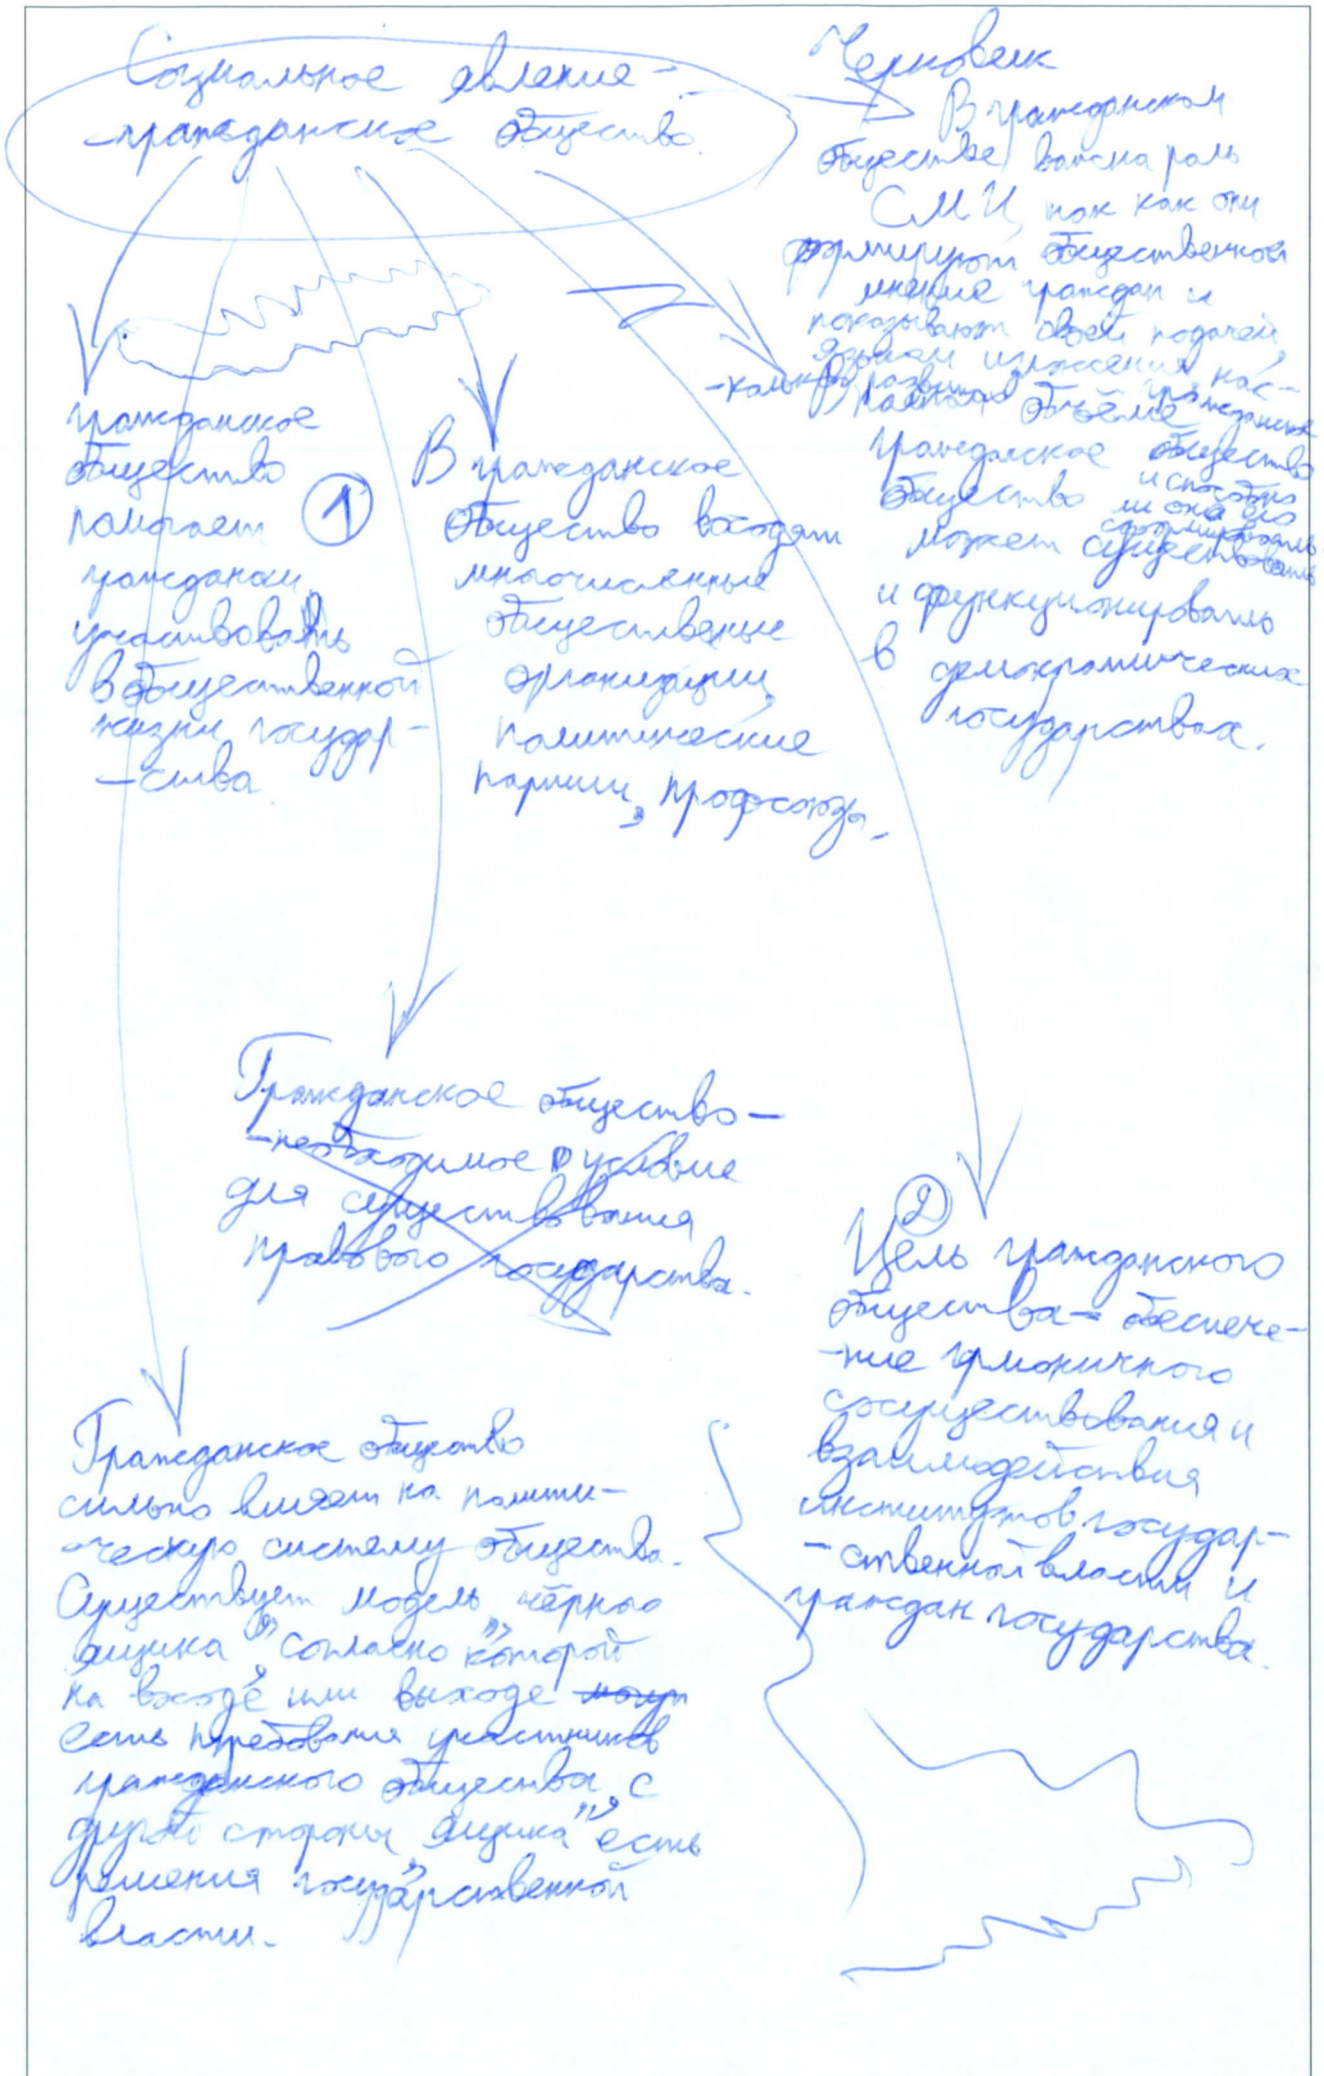 Социальное явление -
- гражданское общество.
Черновик
В гражданском
обществе важна роль
СМИ, так как они
формируют общественное
мнение граждан и
показывают своей подачей,
языком изложения, нас-
-колько развито гражданское
общество
и способно
ли оно его
сформировать
В полном объёме
гражданское
общество
может существовать
и функционировать
в демократических
государствах.
гражданское
общество
помогает
гражданам
участвовать
в общественной
жизни государ-
-ства.
1
В гражданское
общество входят
многочисленные
общественные
организации,
политические
партии, профсоюзы.
Гражданское общество -
- необходимое условие
для существования
правового государства.
2
Цель гражданского
общества - обеспече-
-ние гармоничного
сосуществования и
взаимодействия
институтов государ-
-ственной власти и
граждан государства.
Гражданское общество
сильно влияет на полити-
-ческую систему общества.
Существует модель „чёрного
ящика", согласно которой
на входе или выходе могут
есть требования участников
гражданского общества, с
другой стороны „ящика" есть
решения государственной
власти.